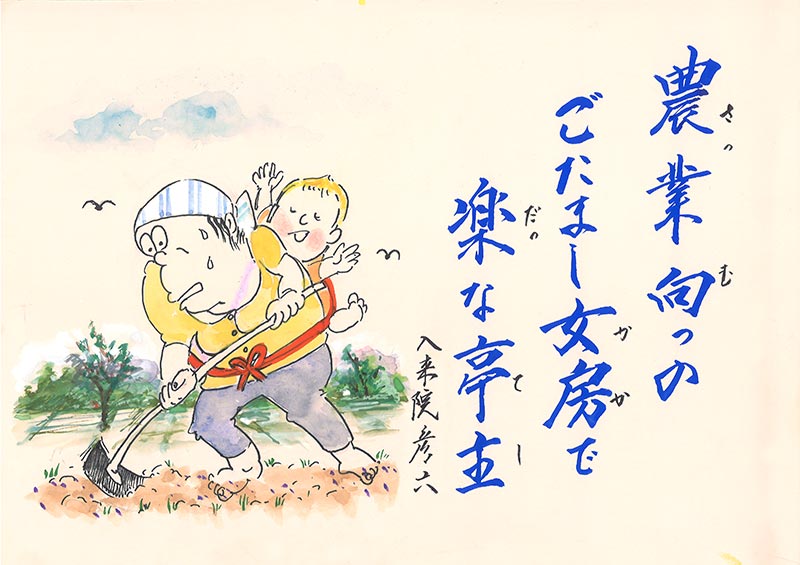 農業向っの
さっ む
ごたまし女房で
かか
楽な亭主
だっ てし
入来院彦六